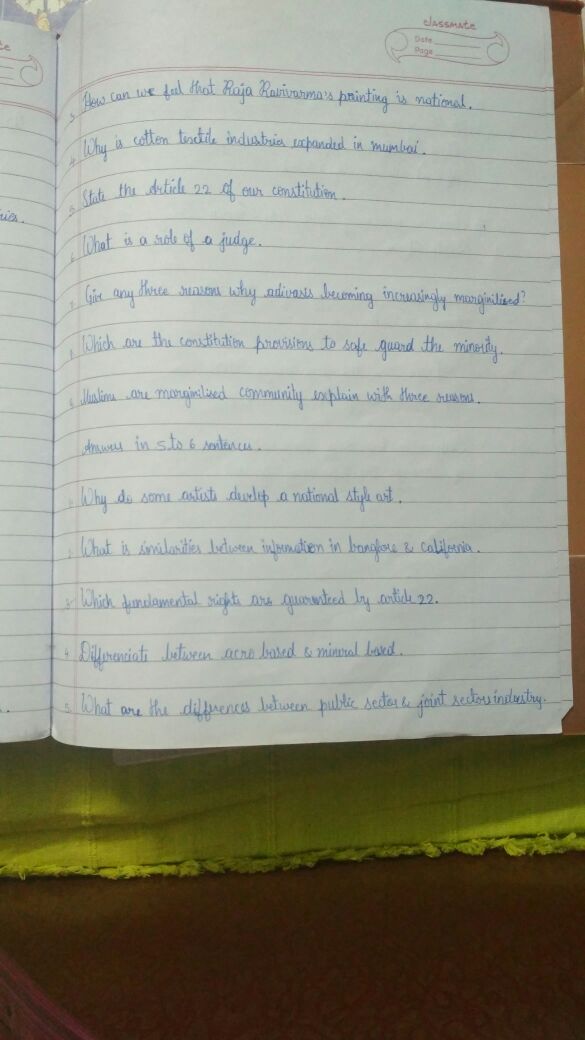 classmate
Date
Page
3. How can we feel that Raja Ravivarma's painting is national.
4. Why is cotton textile industries expanded in mumbai.
5. State the Article 22 of our constitution.
6. What is a role of a judge.
7. Give any three reasons why adivasis becoming increasingly marginilised?
8. Which are the constitution provisions to safe guard the minority.
9. Muslims are marginilised community explain with three reasons.
Answers in 5 to 6 sentences.
1. Why do some artists develop a national style art.
2. What is similarities between information in banglore & california.
3. Which fundamental rights are guaranteed by article 22.
4. Differenciate between acro based & mineral based.
5. What are the differences between public sector & joint sector industry.